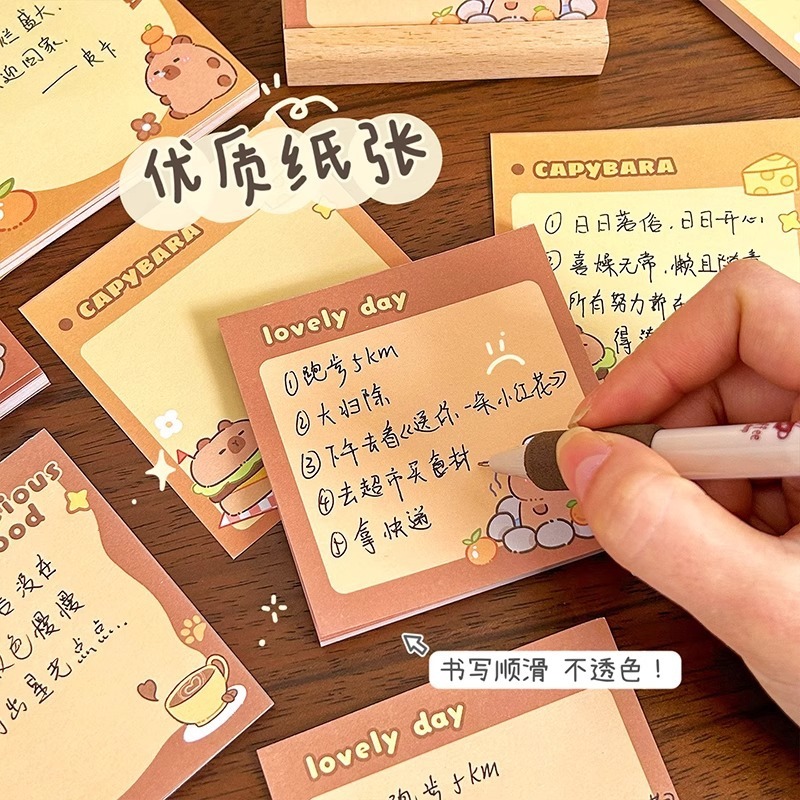 烂盛大.
迎回家.
—— 皮卡
优质纸张
CAPYBARA
CAPYBARA
① 日日落俗,日日开心,
喜燥无常,懒且随意
所有努力都在
得
lovely day
①跑步5km
②大扫除
③下午去看《送你一朵小红花》
④去超市买食材
⑤拿快递
书写顺滑 不透色!
ious
ood
没在
色慢慢
出星光点点...
lovely day
跑步5km